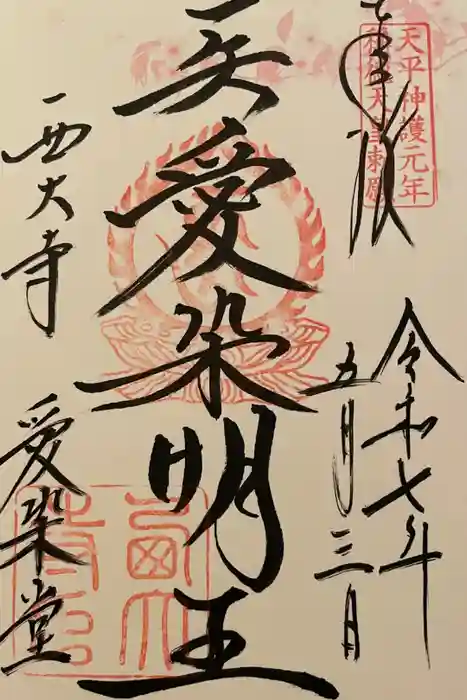 天平神護元年
稱徳天皇勅願
奉拝
令和七年
五月三日
愛染明王
西大寺
愛染堂
西大
寺印